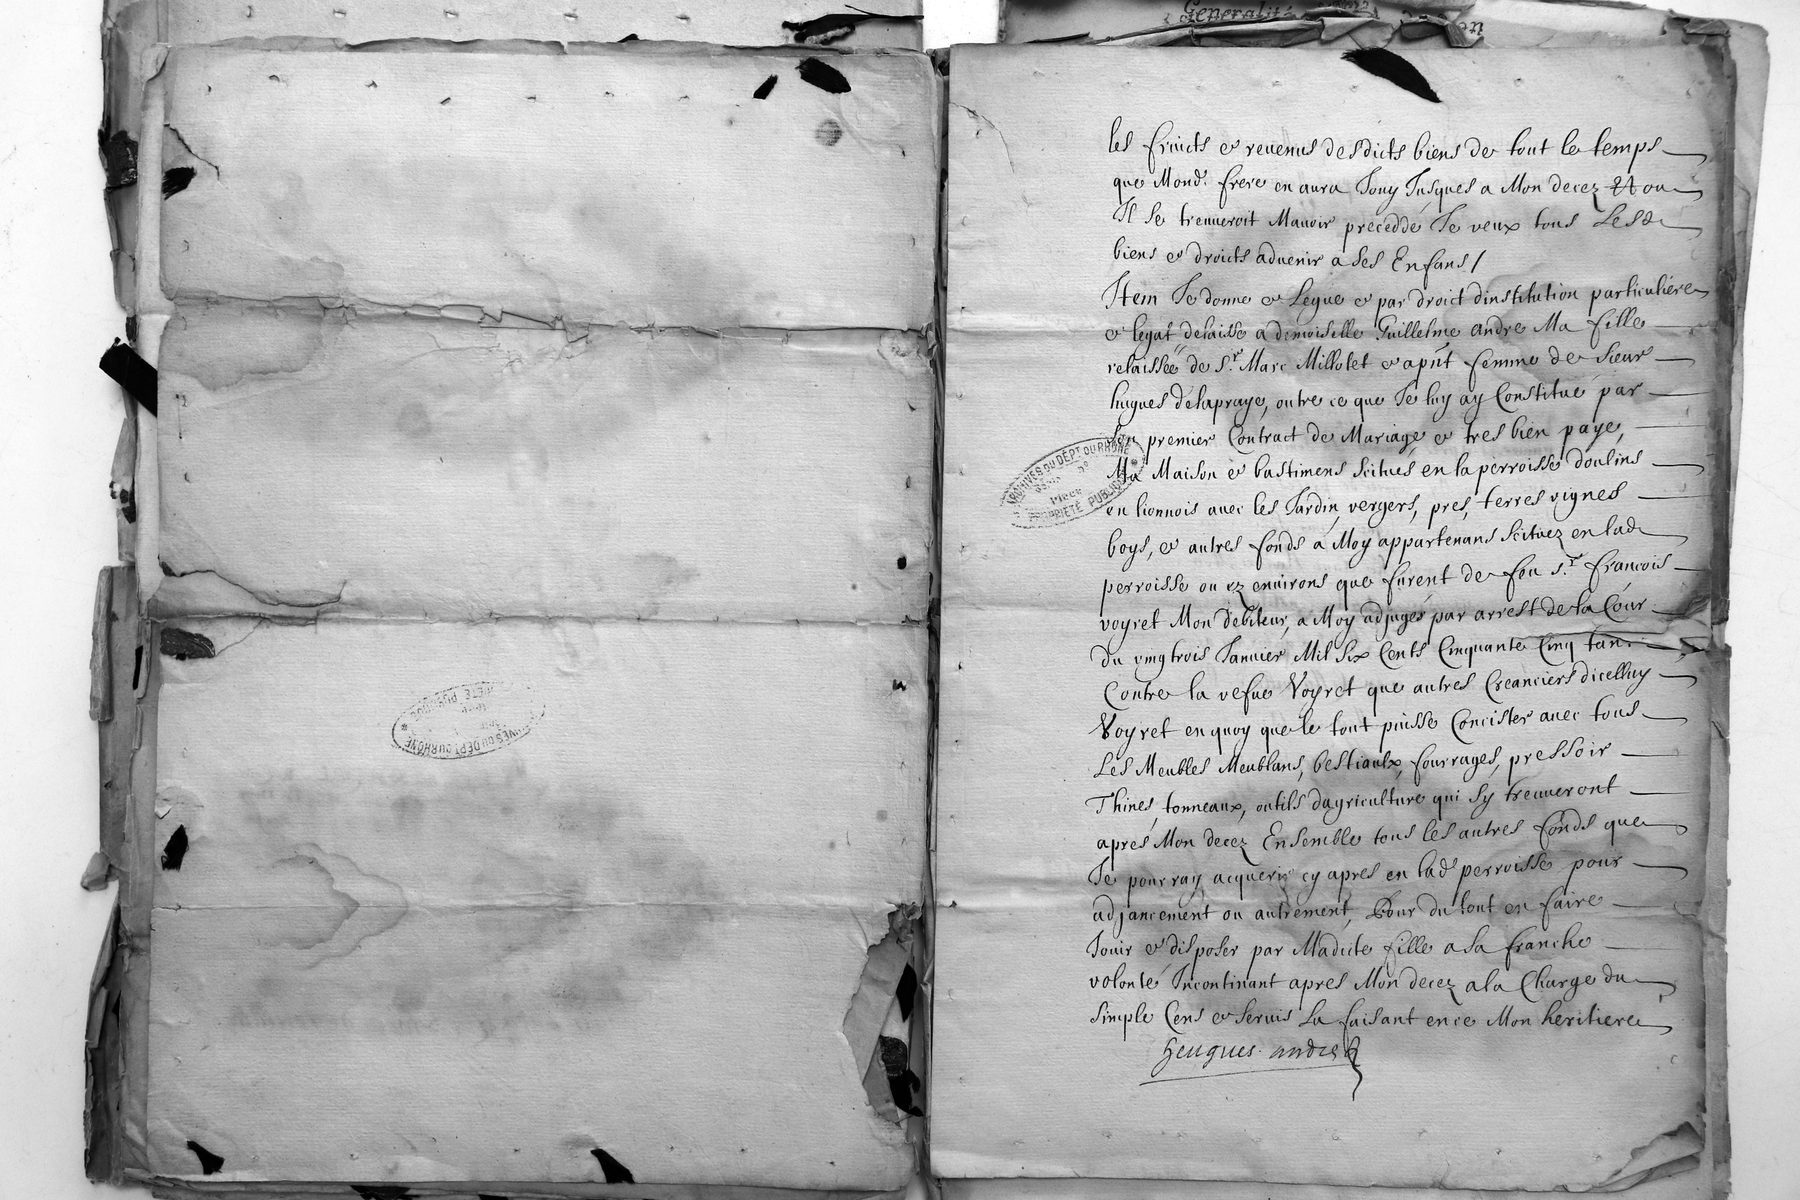 Generalité
les fruicts & reuenus desdicts biens de tout le temps
que Mond. frere en aura Jouy Jusques a Mon decez Et ou
Il se treuueroit Mauoir precedde Je veux tous Lesd
biens & droicts aduenir a ses Enfans /
Item Je donne & Legue & par droict dinstitution particuliere
& legat delaisse a demoiselle Guillelme andre Ma fille
relaissée de Sr. Marc Millotet & apnt femme de sieur
hugues delapraye, outre ce que Je luy ay Constitué par
son premier Contract de Mariage & tres bien paye,
Ma Maison & bastimens scitues en la perroisse doulins
en lionnois auec les Jardin, vergers, pres, terres vignes
boys, & autres fonds a Moy appartenans scituez en lad
perroisse ou ez enuirons que furent de feu Sr. francois
voyret Mon debiteur, a Moy adjuges par arrest de la Cour
du vingtrois Januier Mil six Cents Cinquante Cinq tant
Contre la vefue Voyret que autres Creanciers dicelluy
Voyret en quoy que le tout puisse Concister auec tous
Les Meubles Meublans, bestiaulx, fourrages, pressoir
Thines, tonneaux, outils dagriculture qui sy treuueront
apres Mon decez Ensemble tous les autres fonds que
Je pourray acquerir cy apres en lad perroisse pour
adjancement ou autrement, Pour du tout en faire
Jouir & disposer par Madicte fille a sa franche
volonté Incontinant apres Mon decez a la Charge du
simple Cens & seruis La faisant en ce Mon heritiere
heugues andre
ARCHIVES DU DÉPT DU RHÔNE
Série No
Pièce
PROPRIÉTÉ PUBLIQUE
DU DÉPT DU RHÔNE